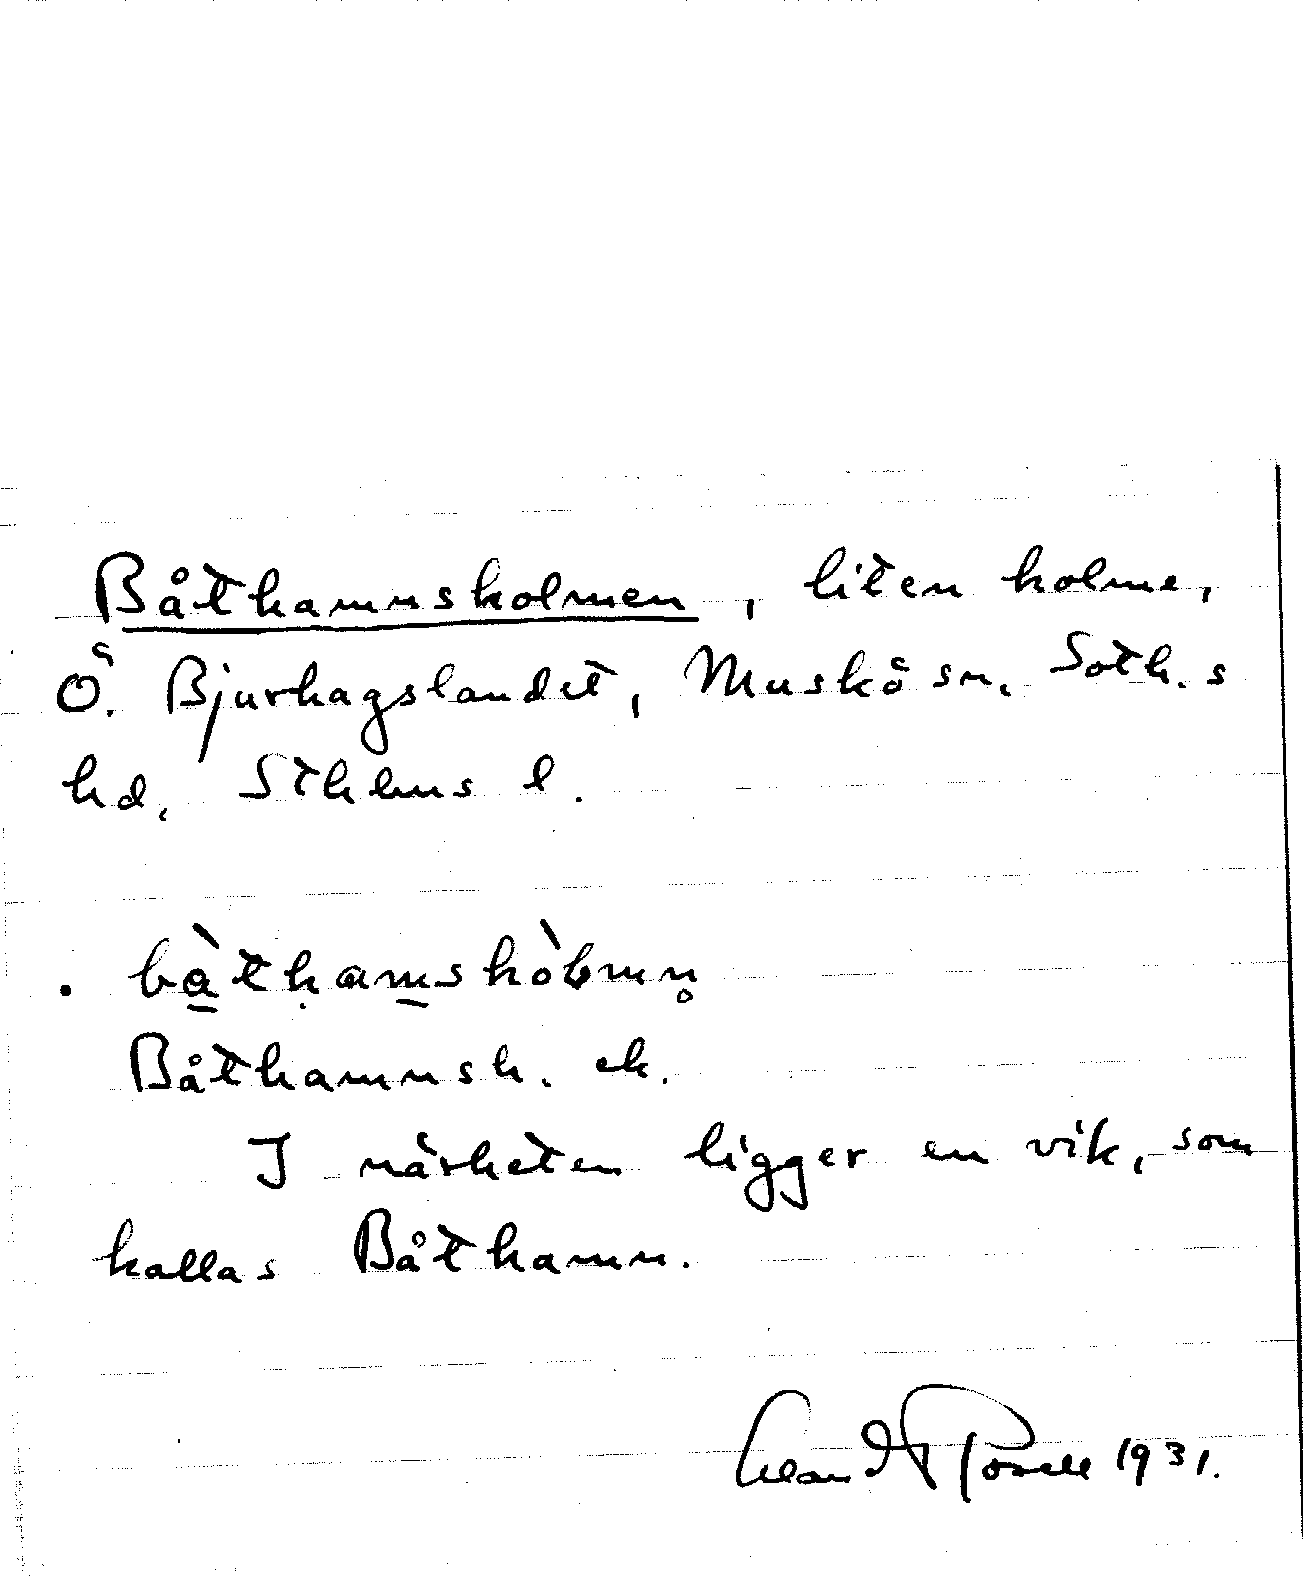 Båthamnsholmen, liten holme,
Ö. Bjurhagslandet, Muskö sn, Soth.s
hd, Sthlms l.
Båthamnsh. ek.
I närheten ligger en vik, som
kallas Båthamn.
1931.